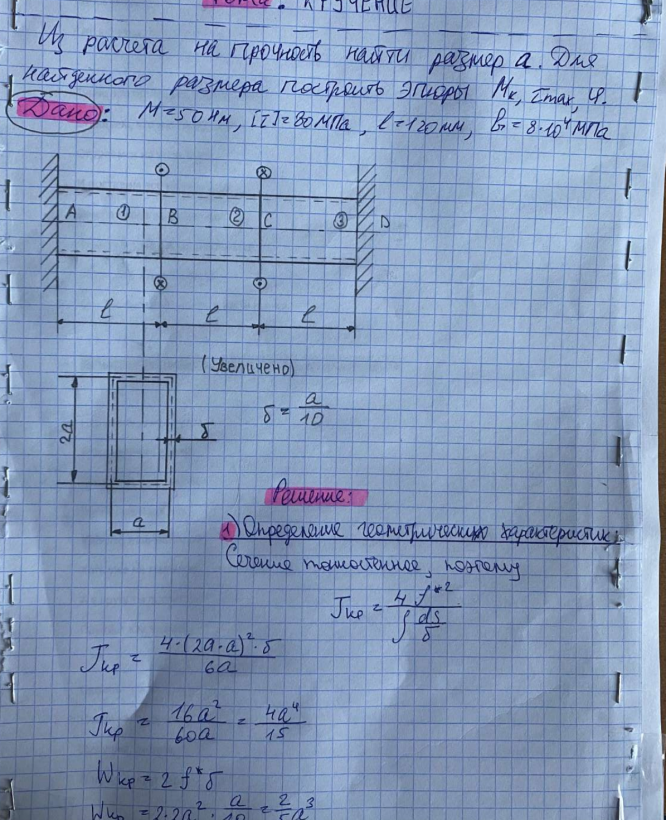 Тема: КРУЧЕНИЕ
Из расчета на прочность найти размер a. Для
найденного размера построить эпюры Mк, τmax, φ.
Дано: M=50 Нм, [τ]=80 МПа, l=120 мм, G=8·10⁴ МПа
A ① B ② C ③ D
l l l
(Увеличено)
2a
δ
δ = a/10
a
Решение:
1) Определение геометрических характеристик.
Сечение тонкостенное, поэтому
Jкр = 4 f*² / ∫ ds/δ
Jкр = 4·(2a·a)²·δ / 6a
Jкр = 16a² / 60a = 4a⁴ / 15
Wкр = 2 f* δ
Wкр = 2·2a² · a/10 = 2/5 a³